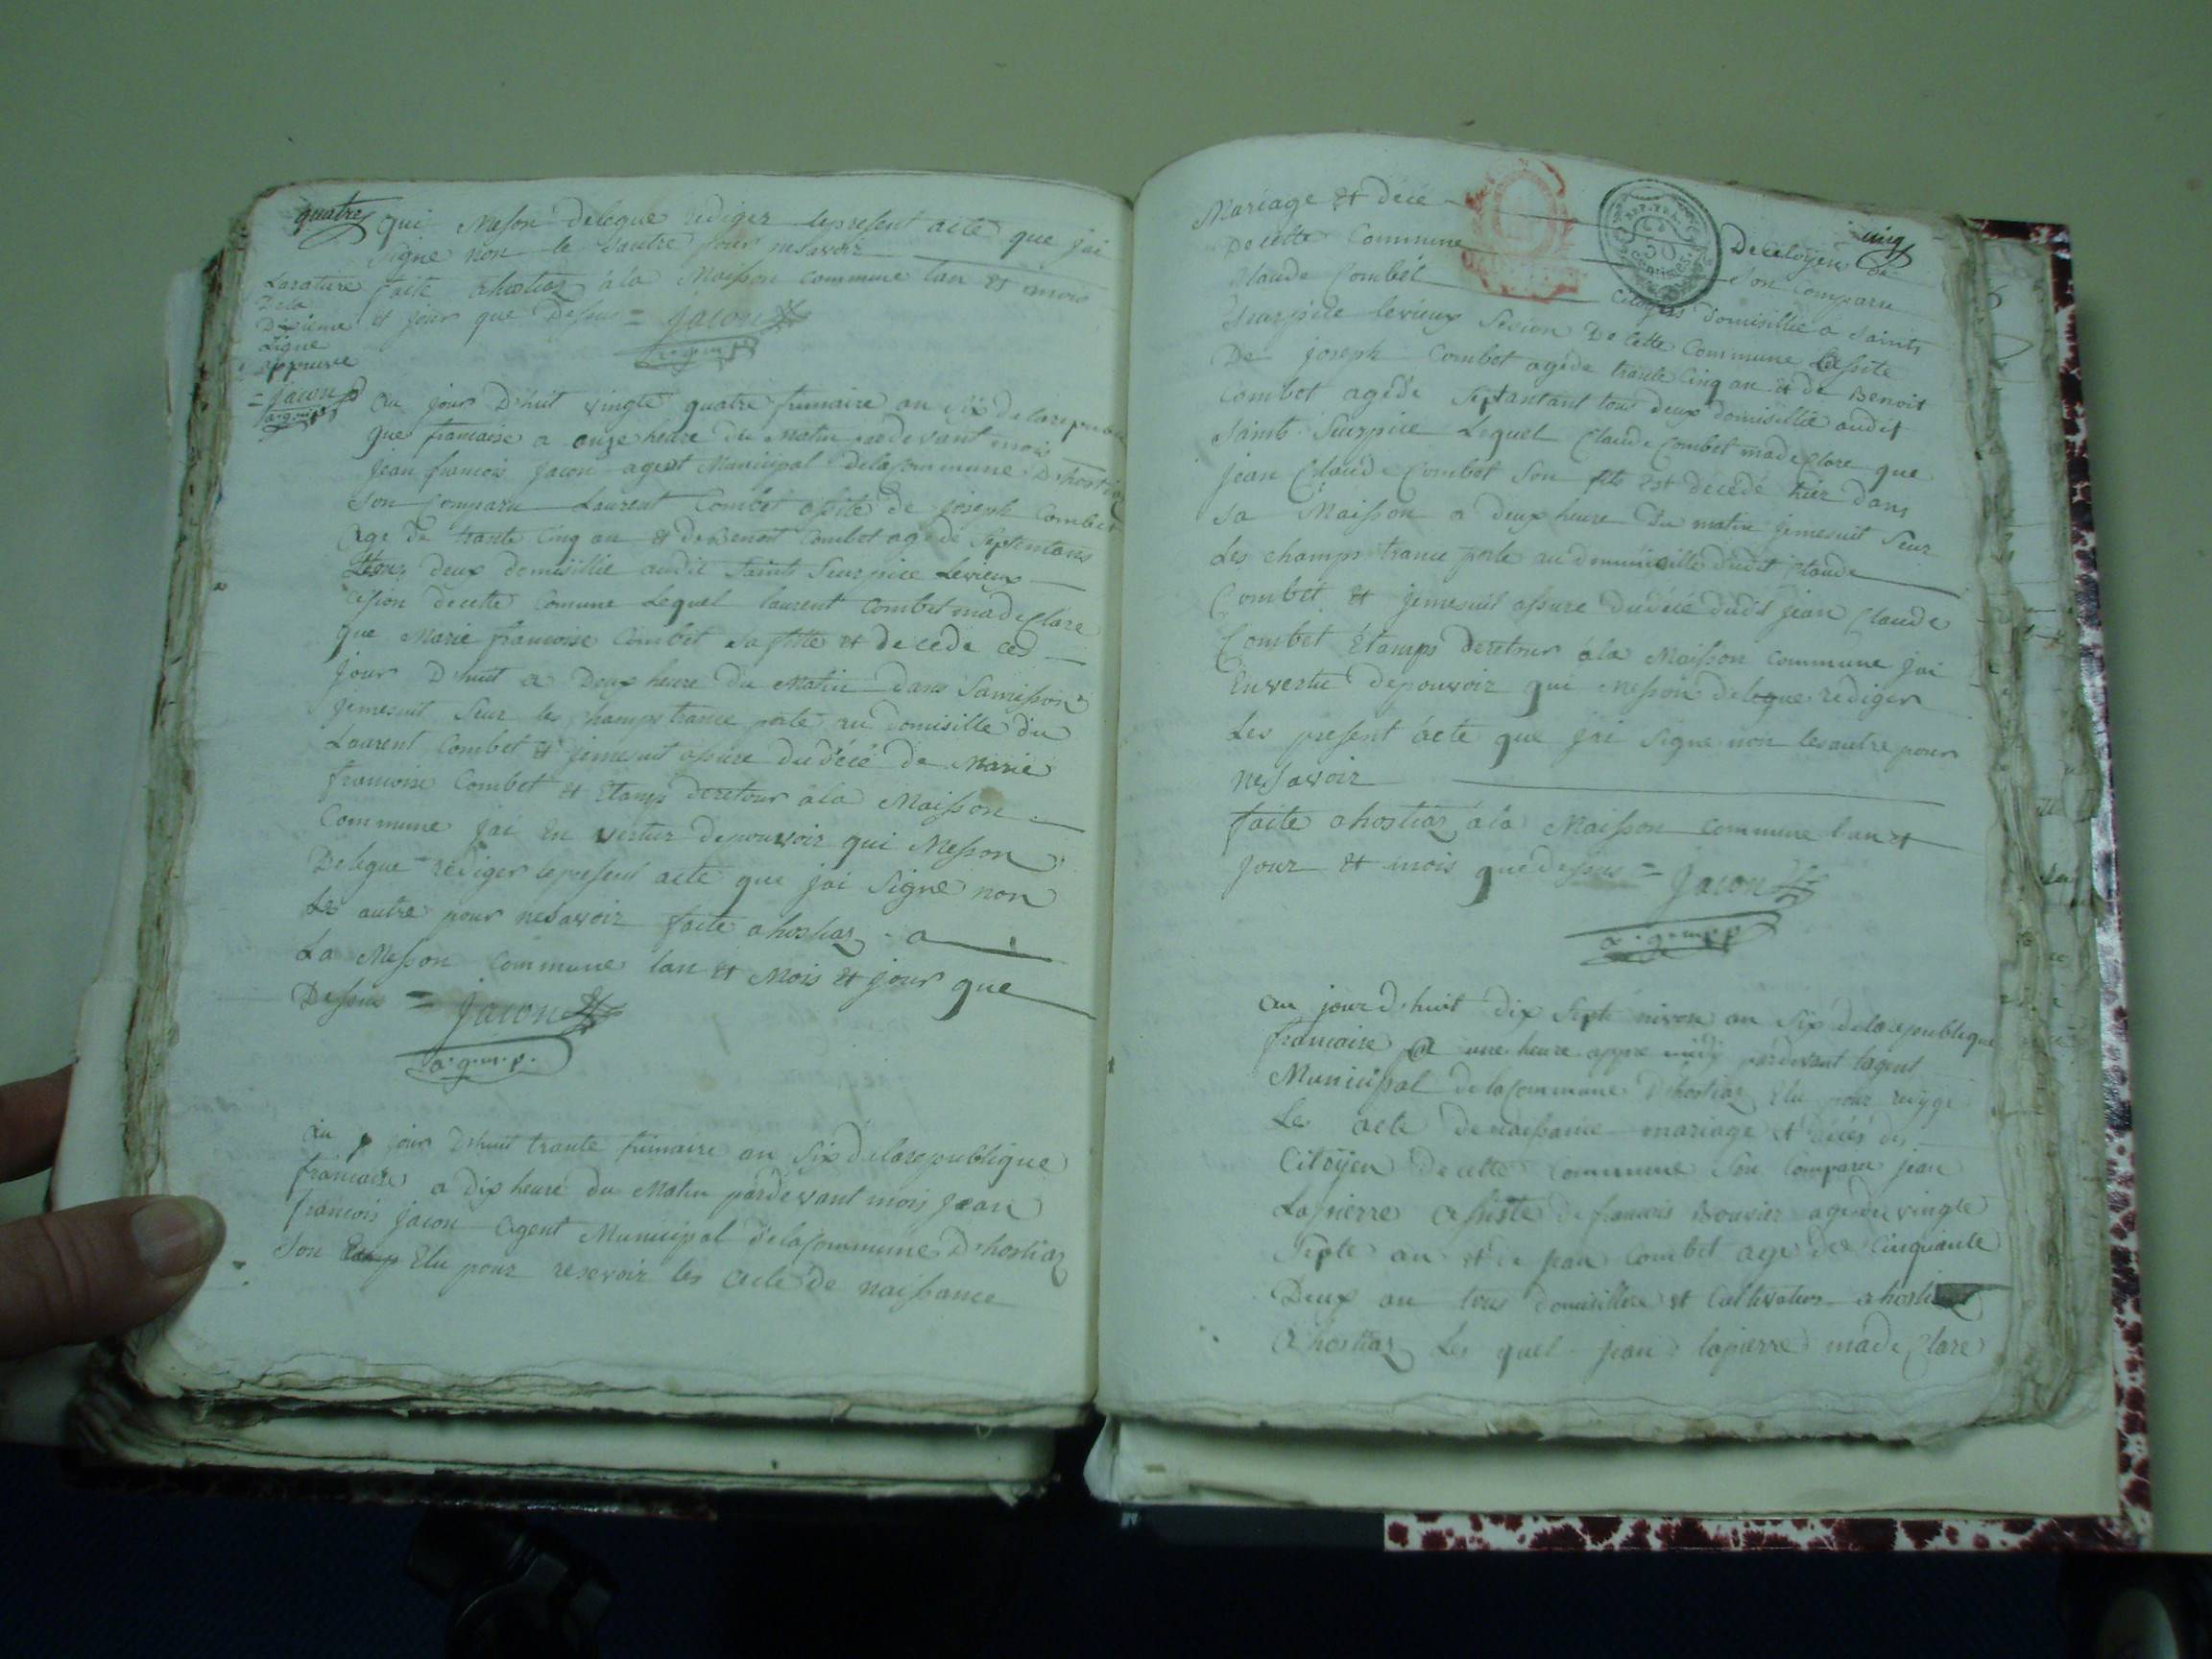 quatre
qui Messon delegue rediger le present acte que jai
signe non le sautre pour nesavoir
faite ahostiaz àla Maisson commune lan et mois
et jour que Dessus = jacon
a.g.m.p.
Larature
Dela
Dixieme
Ligne
approuve
= jacon
a.g.m.p.
au jour D'huit vingte quatre frimaire an six de la republi
que francaise a onze heure du Matin pardevant mois
jean francois jacon agent Municipal delacommune D'hostiaz
son comparu Laurent Combet assité de joseph Combet
age de trante Cinq an et de Benoit Combet agede septentans
tous deux domisillie audit Saints Seurpice Levieux
cesion decette Comune Lequel laurent Combet madeclare
que Marie francoise Combet sa fille et decede ced
jour D'huit a Deux heure du Matin dans Samaisson
jemesuit seur les champs trance porte au domisille du
Laurent Combet et jemesuit assure du décé de Marie
francoise Combet et Etamps deretour àla Maisson
Commune jai En vertur depouvoir qui Messon
Delegue rediger le present acte que jai Signe non
Les autre pour nesavoir faite ahostiaz a
La Messon Commune lan et Mois et jour que
Dessus = jacon
a.g.m.p.
au jour D'huit trante frimaire an Six delarepublique
francaise a dix heure du Matin pardevant mois jean
francois jacon agent Municipal delacommune D'hostiaz
son Elu pour resevoir les acte de naissance
cinq
Mariage et décé Decitoyen de
Decette Commune son comparu
Claude Combet Citoyens domisillie a Saints
Seurpice levieux Sesion De Cette Commune assite
De joseph Combet agede trante Cinq an et de Benoit
Combet agede septantant tous deux domisillie audit
Saints Seurpice Lequel Claude Combet madeclare que
jean Claude Combet Son fils est decedé hier dans
sa Maisson a deux heure du matin jemesuit seur
Les champs trance porte au domiicille dudit Claude
Combet et jemesuit assure dudécé dudit jean Claude
Combet Etamps deretour àla Maisson commune jai
Envertu depouvoir qui messon delegue rediger
Les present acte que jai signe non lesautre pour
nesavoir
faite ahostiaz àla Maisson commune lan et
jour et mois quedessus = jacon
a.g.m.p.
au jour d'huit dix Septe nivose an Six delarepublique
francaise a une heure appre midy pardevant lagent
Municipal delacommune D'hostiaz Elu pour
Le acte denaissance mariage et décés des
Citoÿen decette Commune Son Comparu jean
Lapierre assiste defrancois Bouvier agede vingte
Septe an et de jean Combet age de Cinquante
Deux an tous domisillie et Cultivateur
ahostiaz Les quel jean lapierre madeclare